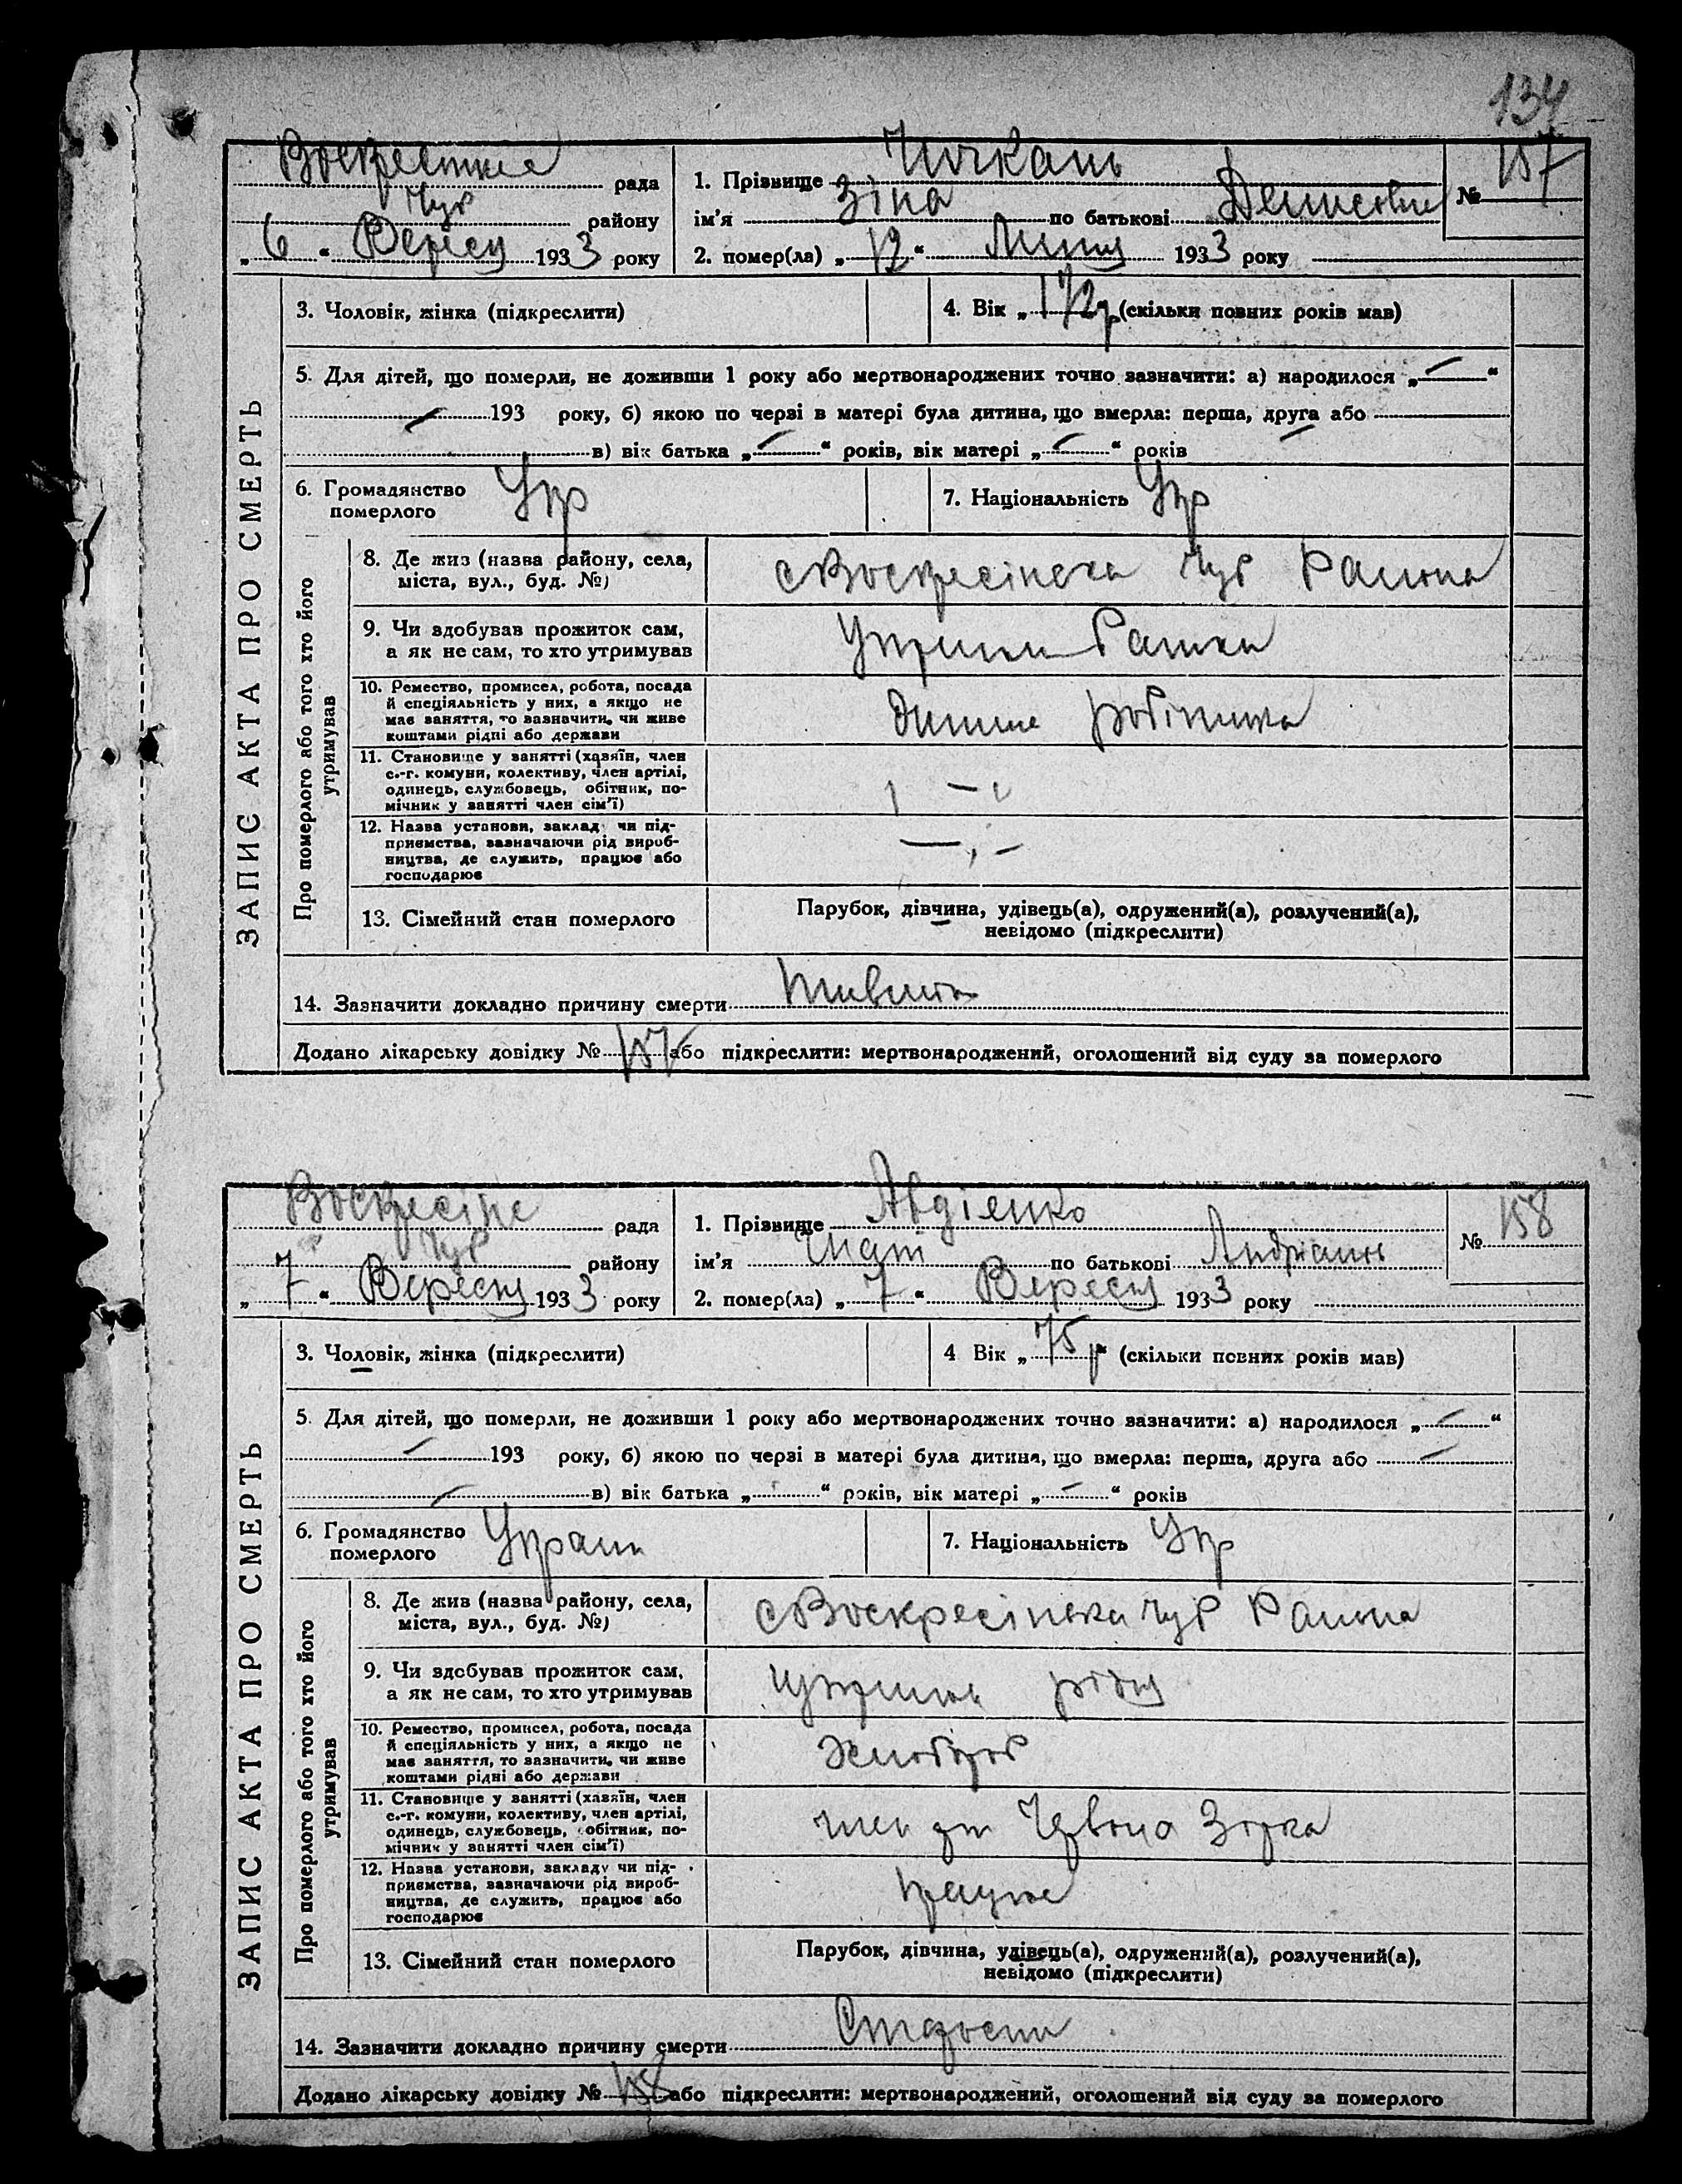 134
рада
району
„ 6 “ Вересня 1933 року
1. Прізвище
ім'я Зіна по батькові
2. помер(ла) „ 12 “ Липня 1933 року
№ 157
ЗАПИС АКТА ПРО СМЕРТЬ
3. Чоловік, жінка (підкреслити)
4. Вік „ (скільки повних років мав)
5. Для дітей, що померли, не доживши 1 року або мертвонароджених точно зазначити: а) народилося „ — “
— 193 року, б) якою по черзі в матері була дитина, що вмерла: перша, друга або
в) вік батька „ — “ років, вік матері „ — “ років
6. Громадянство
померлого Укр
7. Національність Укр
Про померлого або того хто його
утримував
8. Де жив (назва району, села,
міста, вул., буд. №)
с Воскресінська Чуб Района
9. Чи здобував прожиток сам,
а як не сам, то хто утримував
10. Ремество, промисел, робота, посада
й спеціяльність у них, а якщо не
має заняття, то зазначити, чи живе
коштами рідні або держави
робітника
11. Становище у занятті (хазяїн, член
с.-г. комуни, колективу, член артілі,
одинець, службовець, обітник, по-
мічник у занятті член сім'ї)
12. Назва установи, заклад чи під-
приємства, зазначаючи рід вироб-
ництва, де служить, працює або
господарює
13. Сімейний стан померлого
Парубок, дівчина, удівець(а), одружений(а), розлучений(а),
невідомо (підкреслити)
14. Зазначити докладно причину смерти
Додано лікарську довідку № 157 або підкреслити: мертвонароджений, оголошений від суду за померлого
рада
району
„ 7 “ Вересня 1933 року
1. Прізвище Авдіенко
ім'я по батькові
2. помер(ла) „ 7 “ Вересня 1933 року
№ 158
ЗАПИС АКТА ПРО СМЕРТЬ
3. Чоловік, жінка (підкреслити)
4 Вік „ 75 р “ (скільки повних років мав)
5. Для дітей, що померли, не доживши 1 року або мертвонароджених точно зазначити: а) народилося „ — “
— 193 року, б) якою по черзі в матері була дитина, що вмерла: перша, друга або —
— в) вік батька „ “ років, вік матері „ — “ років
6. Громадянство
померлого
7. Національність Укр
Про померлого або того хто його
утримував
8. Де жив (назва району, села,
міста, вул., буд. №)
с Воскресінська Чуб Района
9. Чи здобував прожиток сам,
а як не сам, то хто утримував
10. Ремество, промисел, робота, посада
й спеціяльність у них, а якщо не
має заняття, то зазначити, чи живе
коштами рідні або держави
Хлібороб
11. Становище у занятті (хазяїн, член
с.-г. комуни, колективу, член артілі,
одинець, службовець, обітник, по-
мічник у занятті член сім'ї)
член арт Червона Зорка
12. Назва установи, закладу чи під-
приємства, зазначаючи рід вироб-
ництва, де служить, працює або
господарює
працює
13. Сімейний стан померлого
Парубок, дівчина, удівець(а), одружений(а), розлучений(а),
невідомо (підкреслити)
14. Зазначити докладно причину смерти Старости
Додано лікарську довідку № 158 або підкреслити: мертвонароджений, оголошений від суду за померлого